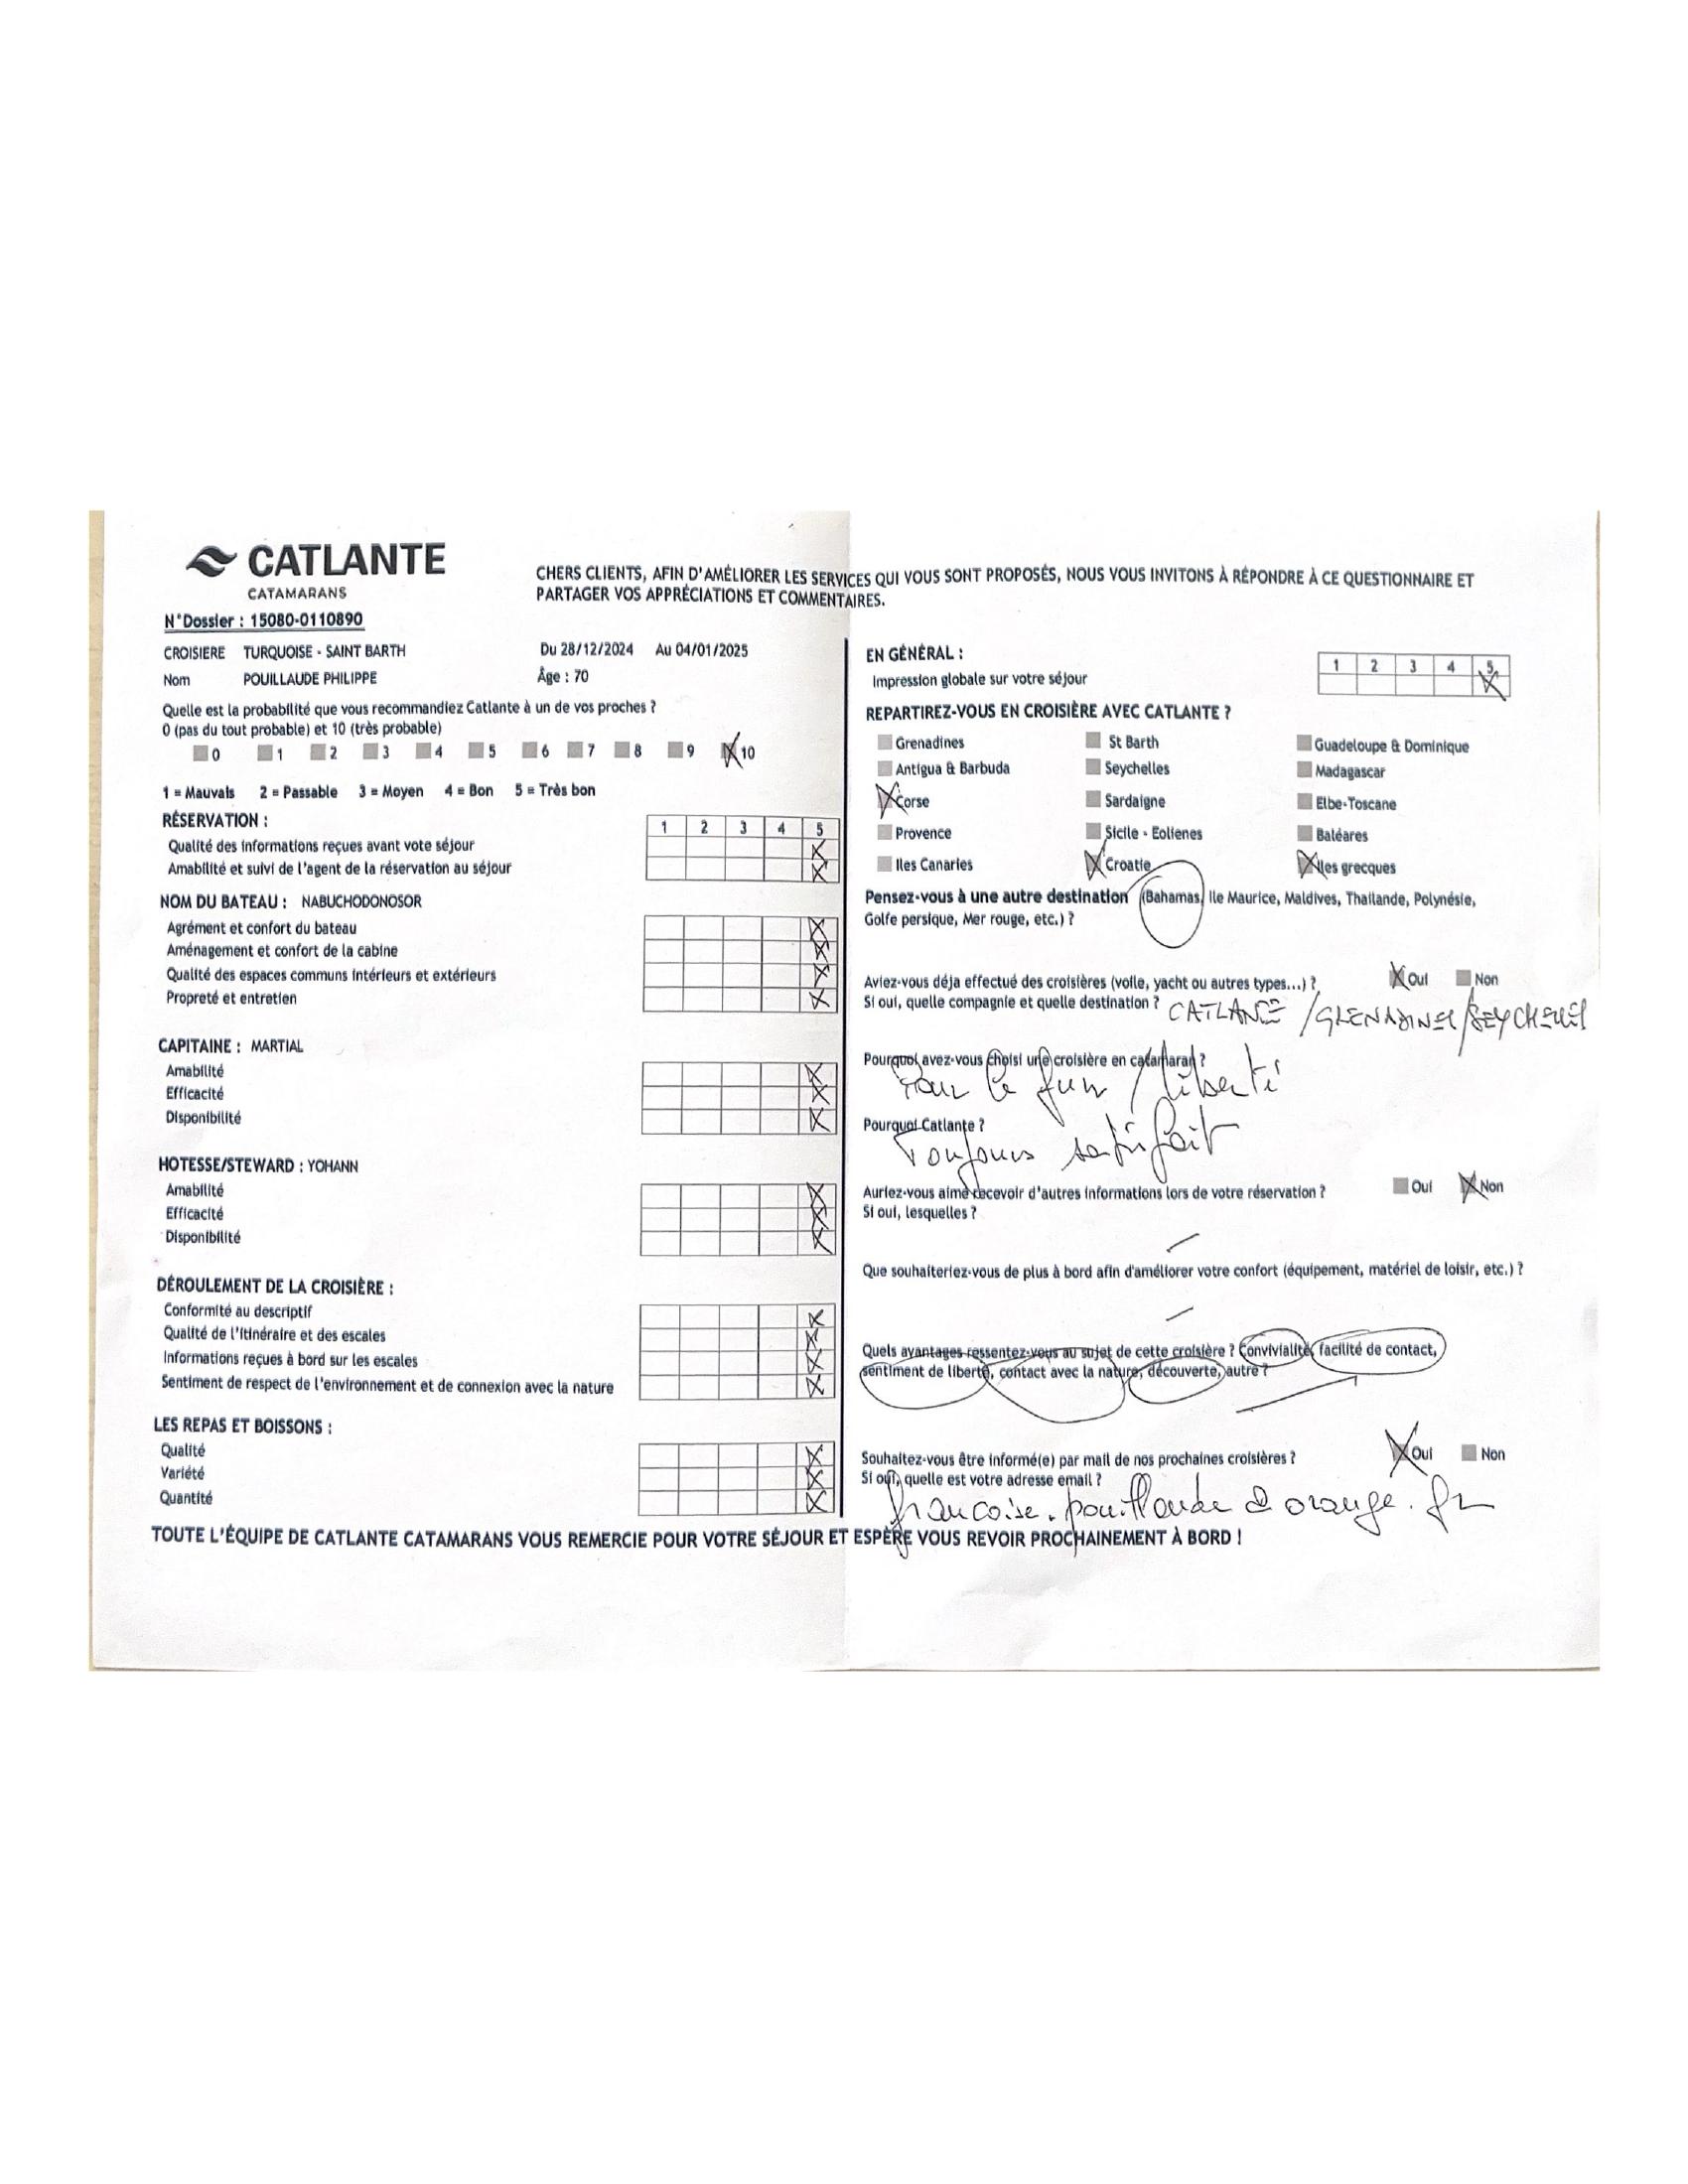 CATLANTE
CATAMARANS
CHERS CLIENTS, AFIN D'AMÉLIORER LES SERVICES QUI VOUS SONT PROPOSÉS, NOUS VOUS INVITONS À RÉPONDRE À CE QUESTIONNAIRE ET
PARTAGER VOS APPRÉCIATIONS ET COMMENTAIRES.
N°Dossier : 15080-0110890
CROISIERE TURQUOISE - SAINT BARTH Du 28/12/2024 Au 04/01/2025
Nom POUILLAUDE PHILIPPE Âge : 70
Quelle est la probabilité que vous recommandiez Catlante à un de vos proches ?
0 (pas du tout probable) et 10 (très probable)
0 1 2 3 4 5 6 7 8 9 10
1 = Mauvais 2 = Passable 3 = Moyen 4 = Bon 5 = Très bon
RÉSERVATION : 1 2 3 4 5
Qualité des informations reçues avant vote séjour
Amabilité et suivi de l'agent de la réservation au séjour
NOM DU BATEAU : NABUCHODONOSOR
Agrément et confort du bateau
Aménagement et confort de la cabine
Qualité des espaces communs intérieurs et extérieurs
Propreté et entretien
CAPITAINE : MARTIAL
Amabilité
Efficacité
Disponibilité
HOTESSE/STEWARD : YOHANN
Amabilité
Efficacité
Disponibilité
DÉROULEMENT DE LA CROISIÈRE :
Conformité au descriptif
Qualité de l'itinéraire et des escales
Informations reçues à bord sur les escales
Sentiment de respect de l'environnement et de connexion avec la nature
LES REPAS ET BOISSONS :
Qualité
Variété
Quantité
EN GÉNÉRAL : 1 2 3 4 5
Impression globale sur votre séjour
REPARTIREZ-VOUS EN CROISIÈRE AVEC CATLANTE ?
Grenadines St Barth Guadeloupe & Dominique
Antigua & Barbuda Seychelles Madagascar
Corse Sardaigne Elbe-Toscane
Provence Sicile - Eoliennes Baléares
Iles Canaries Croatie Iles grecques
Pensez-vous à une autre destination (Bahamas, Ile Maurice, Maldives, Thailande, Polynésie,
Golfe persique, Mer rouge, etc.) ?
Aviez-vous déja effectué des croisières (voile, yacht ou autres types...) ? Oui Non
Si oui, quelle compagnie et quelle destination ? CATLANTE / GRENADINES / SEYCHELLES
Pourquoi avez-vous choisi une croisière en catamaran ?
Pour le fun / liberté
Pourquoi Catlante ?
Toujours satisfait
Auriez-vous aimé recevoir d'autres informations lors de votre réservation ? Oui Non
Si oui, lesquelles ?
Que souhaiteriez-vous de plus à bord afin d'améliorer votre confort (équipement, matériel de loisir, etc.) ?
Quels avantages ressentez-vous au sujet de cette croisière ? Convivialité, facilité de contact,
sentiment de liberté, contact avec la nature, découverte, autre ?
Souhaitez-vous être informé(e) par mail de nos prochaines croisières ? Oui Non
Si oui, quelle est votre adresse email ?
francoise.pouillaude@orange.fr
TOUTE L'ÉQUIPE DE CATLANTE CATAMARANS VOUS REMERCIE POUR VOTRE SÉJOUR ET ESPÈRE VOUS REVOIR PROCHAINEMENT À BORD !